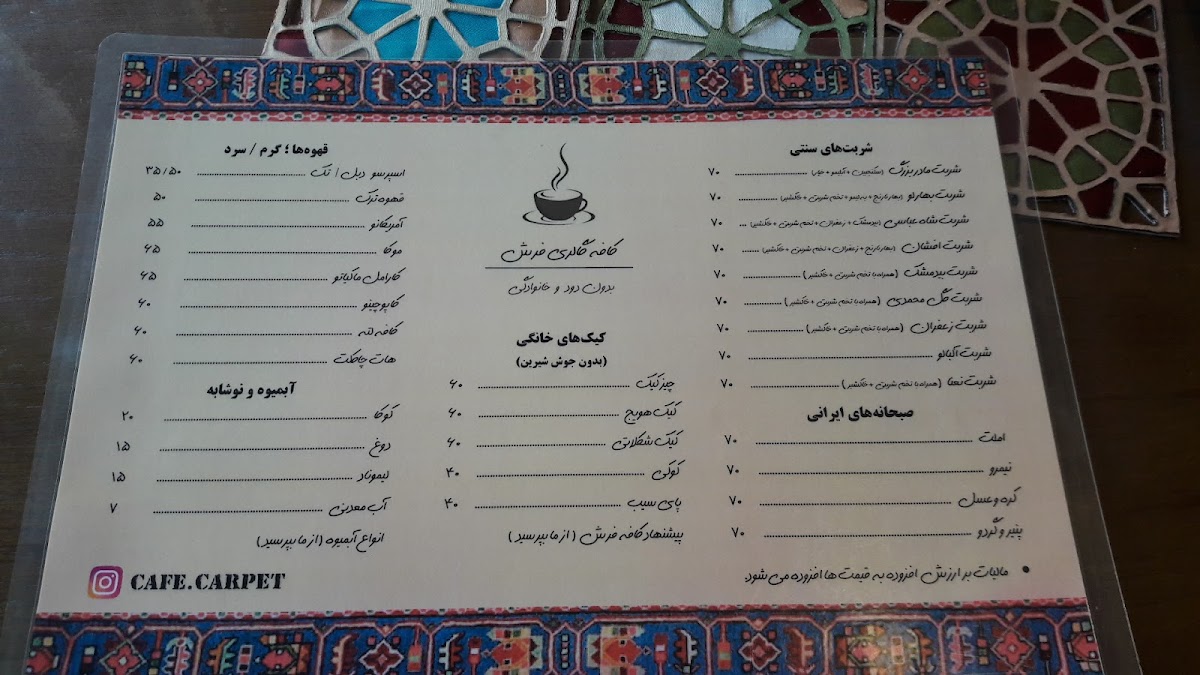 شربت‌های سنتی
شربت مادربزرگ (سکنجبین + آبلیمو + خیار) ۷۰
شربت بهارنو (بهارنارنج + به‌لیمو + تخم شربتی + خاکشیر) ۷۰
شربت شاه عباسی (بیدمشک + زعفران + تخم شربتی + خاکشیر) ۷۰
شربت افشان (بهارنارنج + زعفران + تخم شربتی + خاکشیر) ۷۰
شربت بیدمشک (همراه با تخم شربتی + خاکشیر) ۷۰
شربت گل محمدی (همراه با تخم شربتی + خاکشیر) ۷۰
شربت زعفران (همراه با تخم شربتی + خاکشیر) ۷۰
شربت آلبالو ۷۰
شربت نعنا (همراه با تخم شربتی + خاکشیر) ۷۰
صبحانه‌های ایرانی
املت ۷۰
نیمرو ۷۰
کره و عسل ۷۰
پنیر و گردو ۷۰
• مالیات بر ارزش افزوده به قیمت ها افزوده می شود.
کافه گالری فرش
بدون دود و خانوادگی
کیک‌های خانگی
(بدون جوش شیرین)
چیز کیک ۶۰
کیک هویج ۶۰
کیک شکلاتی ۶۰
کوکی ۴۰
پای سیب ۴۰
پیشنهاد کافه فرش (از ما بپرسید)
قهوه‌ها ؛ گرم / سرد
اسپرسو دبل / تک ۳۵/۵۰
قهوه ترک ۵۰
آمریکانو ۵۵
موکا ۶۵
کارامل ماکیاتو ۶۵
کاپوچینو ۶۰
کافه لته ۶۰
هات چاکلت ۶۰
آبمیوه و نوشابه
کوکا ۲۰
دوغ ۱۵
لیموناد ۱۵
آب معدنی ۷
انواع آبمیوه (از ما بپرسید)
CAFE.CARPET